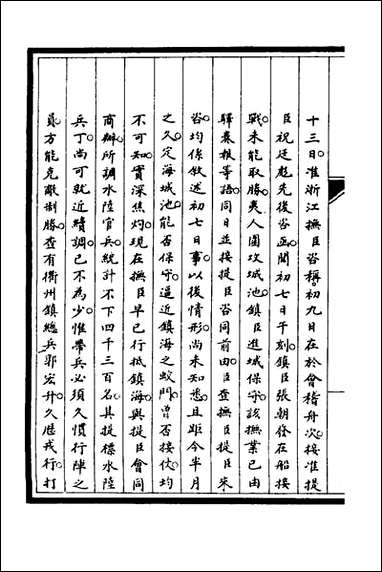 十三日。准浙江撫臣咨稱。初九日在於會稽舟次。接准提
臣祝廷彪先後咨函。聞初七日午刻。鎮臣張朝發在船接
戰。未能取勝。夷人圍攻城池。鎮臣進城保守。該撫業已由
驛奏挨等語。同日並接提臣咨同前由。臣查撫臣提臣來
咨。均係敘述初七日事。以後情形。尚未知悉。且距今半月
之久。定海城池。能否保守。逼近鎮海之蛟門。曾否接仗。均
不可知。實深焦灼。現在撫臣早已行抵鎮海。與提臣會同
商辦。所調水陸官兵。統計不下四千三百名。其提標水陸
兵丁。尚可就近續調。已不為少。惟帶兵必須久慣行陣之
員。方能克敵制勝。查有衢州鎮總兵郭宏升。久歷戎行。打